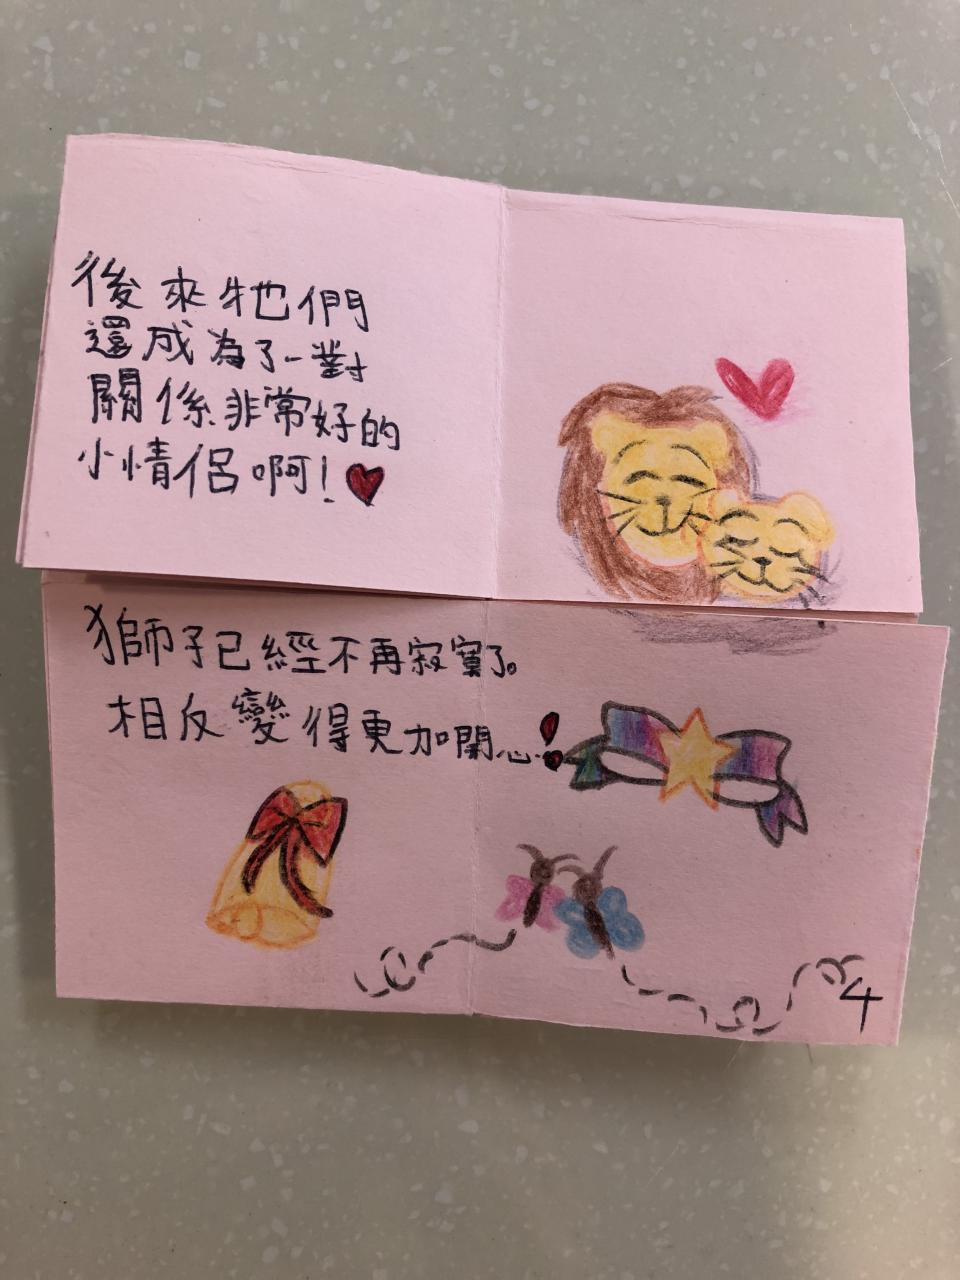 後來牠們
還成為了一對
關係非常好的
小情侶啊!
獅子已經不再寂寞了。
相反變得更加開心!
4